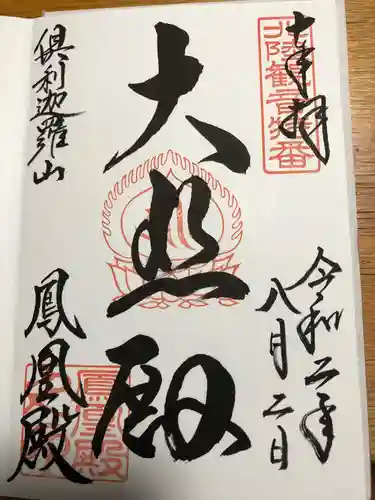 奉拝
北陸観音特番
令和二年
八月二日
大悲殿
倶利迦羅山
鳳凰殿